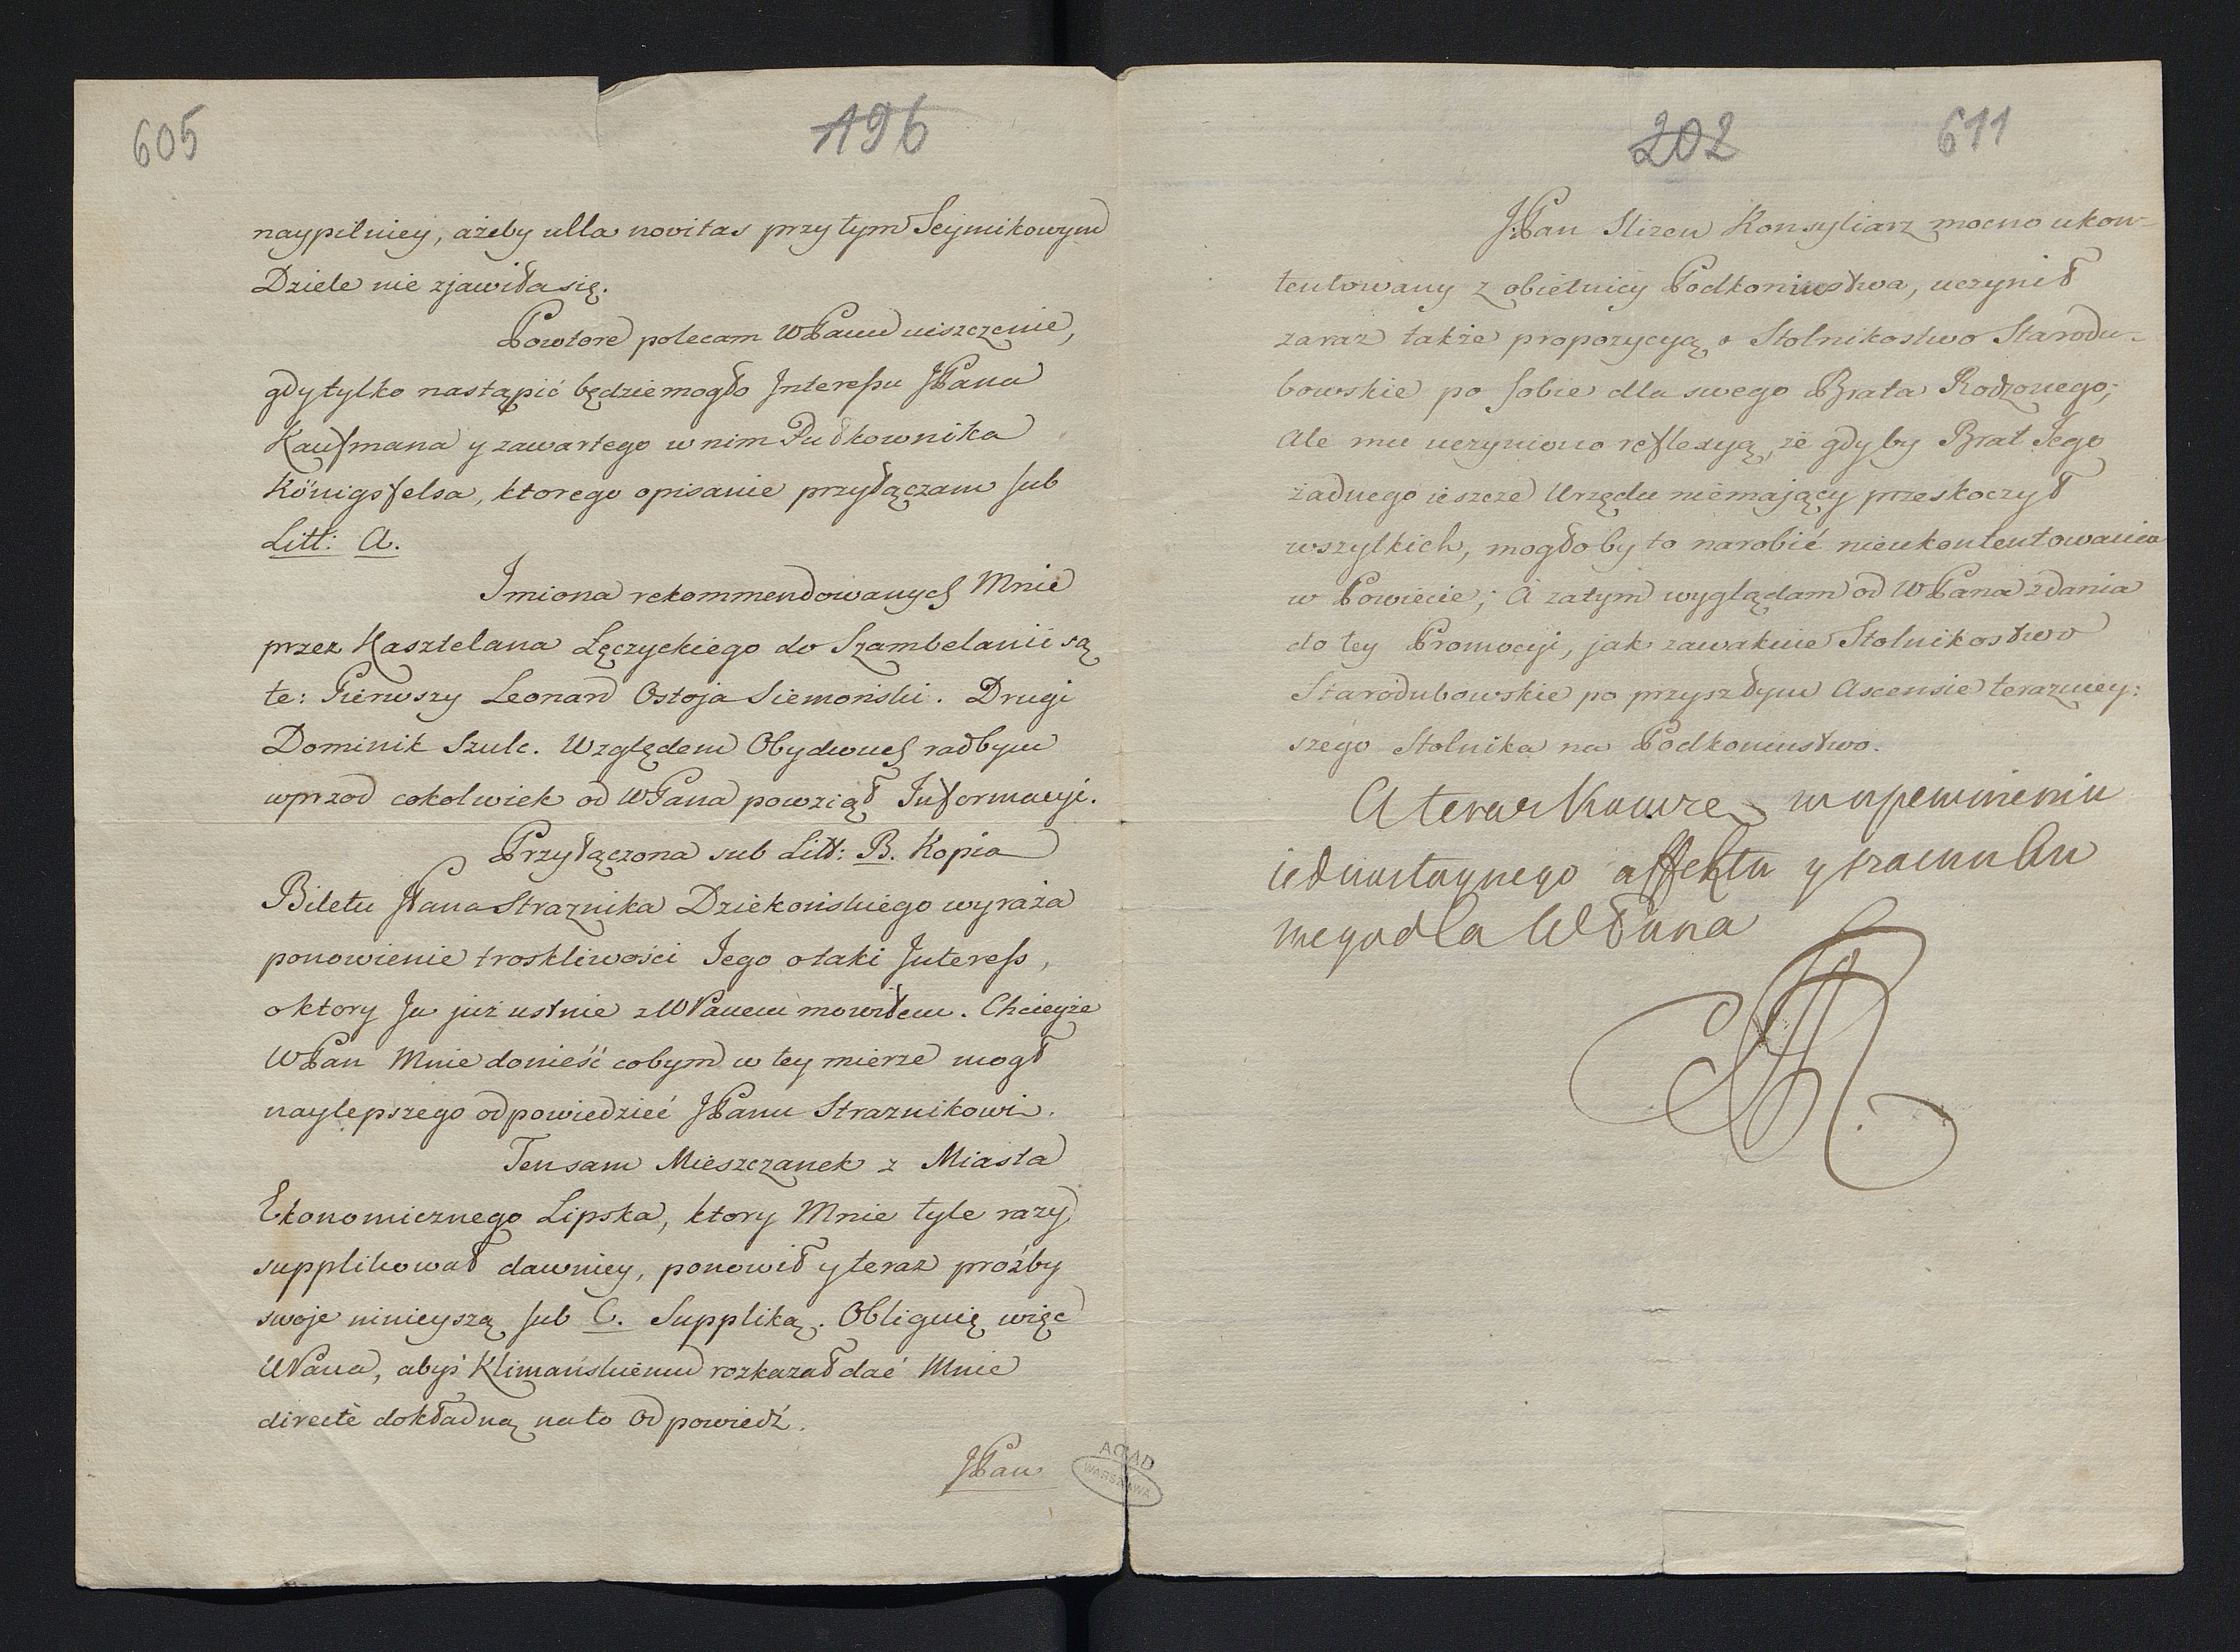 605
196
naypilniey, ażeby ulla novitas przy tym Seymikowym
Dziele nie zjawiła się.
Powtore polecam WPanu uiszczenie,
gdy tylko nastąpić będzie mogło Interessu JPana
Kaufmana y zawartego w nim Pułkownika
Königsfelsa, ktorego opisanie przyłączam sub
Litt: A.
Imiona rekommendowanych Mnie
przez Kasztelana Łęczyckiego do Szambelanii są
te: Pierwszy Leonard Ostoja Siemoński. Drugi
Dominik Szulc. Względem Obydwuch radbym
wprzod cokolwiek od WPana powziął Informacyi.
Przyłączona sub Litt: B. Kopia
Biletu JPana Straznika Dziekońskiego wyraża
ponowienie troskliwości Jego o taki Interess,
o ktory Ja już ustnie z WPanem mowiłem. Chcieyże
WPan Mnie donieść cobym w tey mierze mogł
naylepszego odpowiedzieć JPanu Straznikowi.
Ten sam Mieszczanek z Miasta
Ekonomicznego Lipska, ktory Mnie tyle razy
supplikował dawniey, ponowił y teraz prożby
swoje ninieyszą sub C. Suppliką. Obliguię więc
WPana, abyś Klimańskiemu rozkazał dać Mnie
directè dokładną na to Odpowiedź.
JPan
AGAD
WARSZAWA
202
611
JPan Slizen Konsyliarz mocno ukon-
tentowany z obietnicy Podkoniustwa, uczynił
zaraz także propozycyą o Stolnikostwo Starodu-
bowskie po sobie dla swego Brata Rodzonego;
Ale mu uczyniono reflexyą, że gdyby Brat Jego
żadnego ieszcze Urzędu niemający przeskoczył
wszytkich, mogłoby to narobić nieukontentowania
w Powiecie; A zatym wyglądam od WPana zdania
do tey Promocyi, jak zawakuie Stolnikostwo
Starodubowskie po przyszłym Ascensie terazniey:
szego Stolnika na Podkoniustwo.
A teraz Kończę na upewnieniu
iednostaynego affektu y szacunku
mego dla WPana
SAR